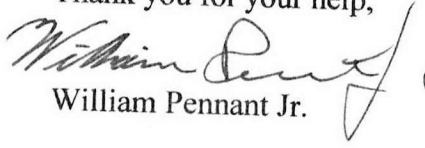 Thank you for your help,
William Pennant Jr.
William Pennant Jr.